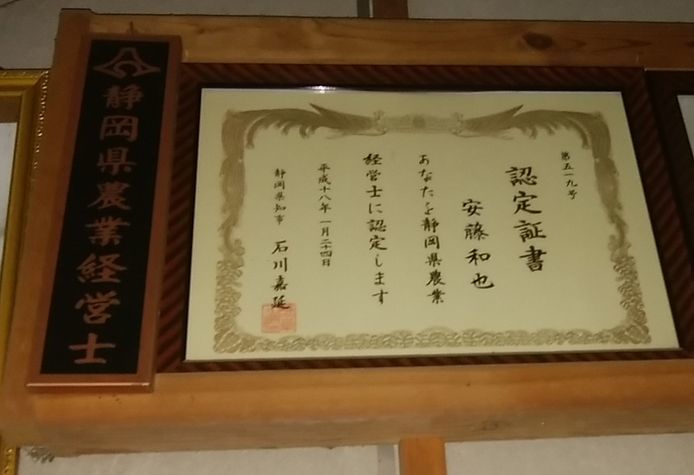 静岡県農業経営士
第五一九号
認定証書
安藤和也
あなたを静岡県農業
経営士に認定します
平成十八年一月二十四日
静岡県知事 石川嘉延